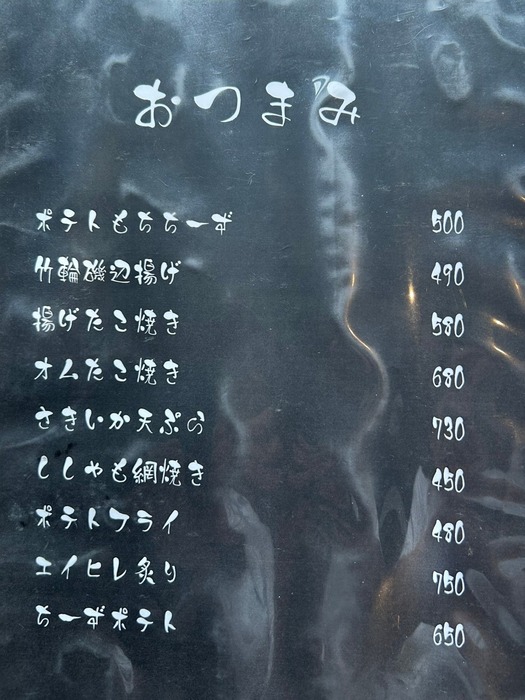 おつまみ
ポテトもちちーず 500
竹輪磯辺揚げ 490
揚げたこ焼き 580
オムたこ焼き 680
さきいか天ぷら 730
ししゃも網焼き 450
ポテトフライ 480
エイヒレ炙り 750
ちーずポテト 650